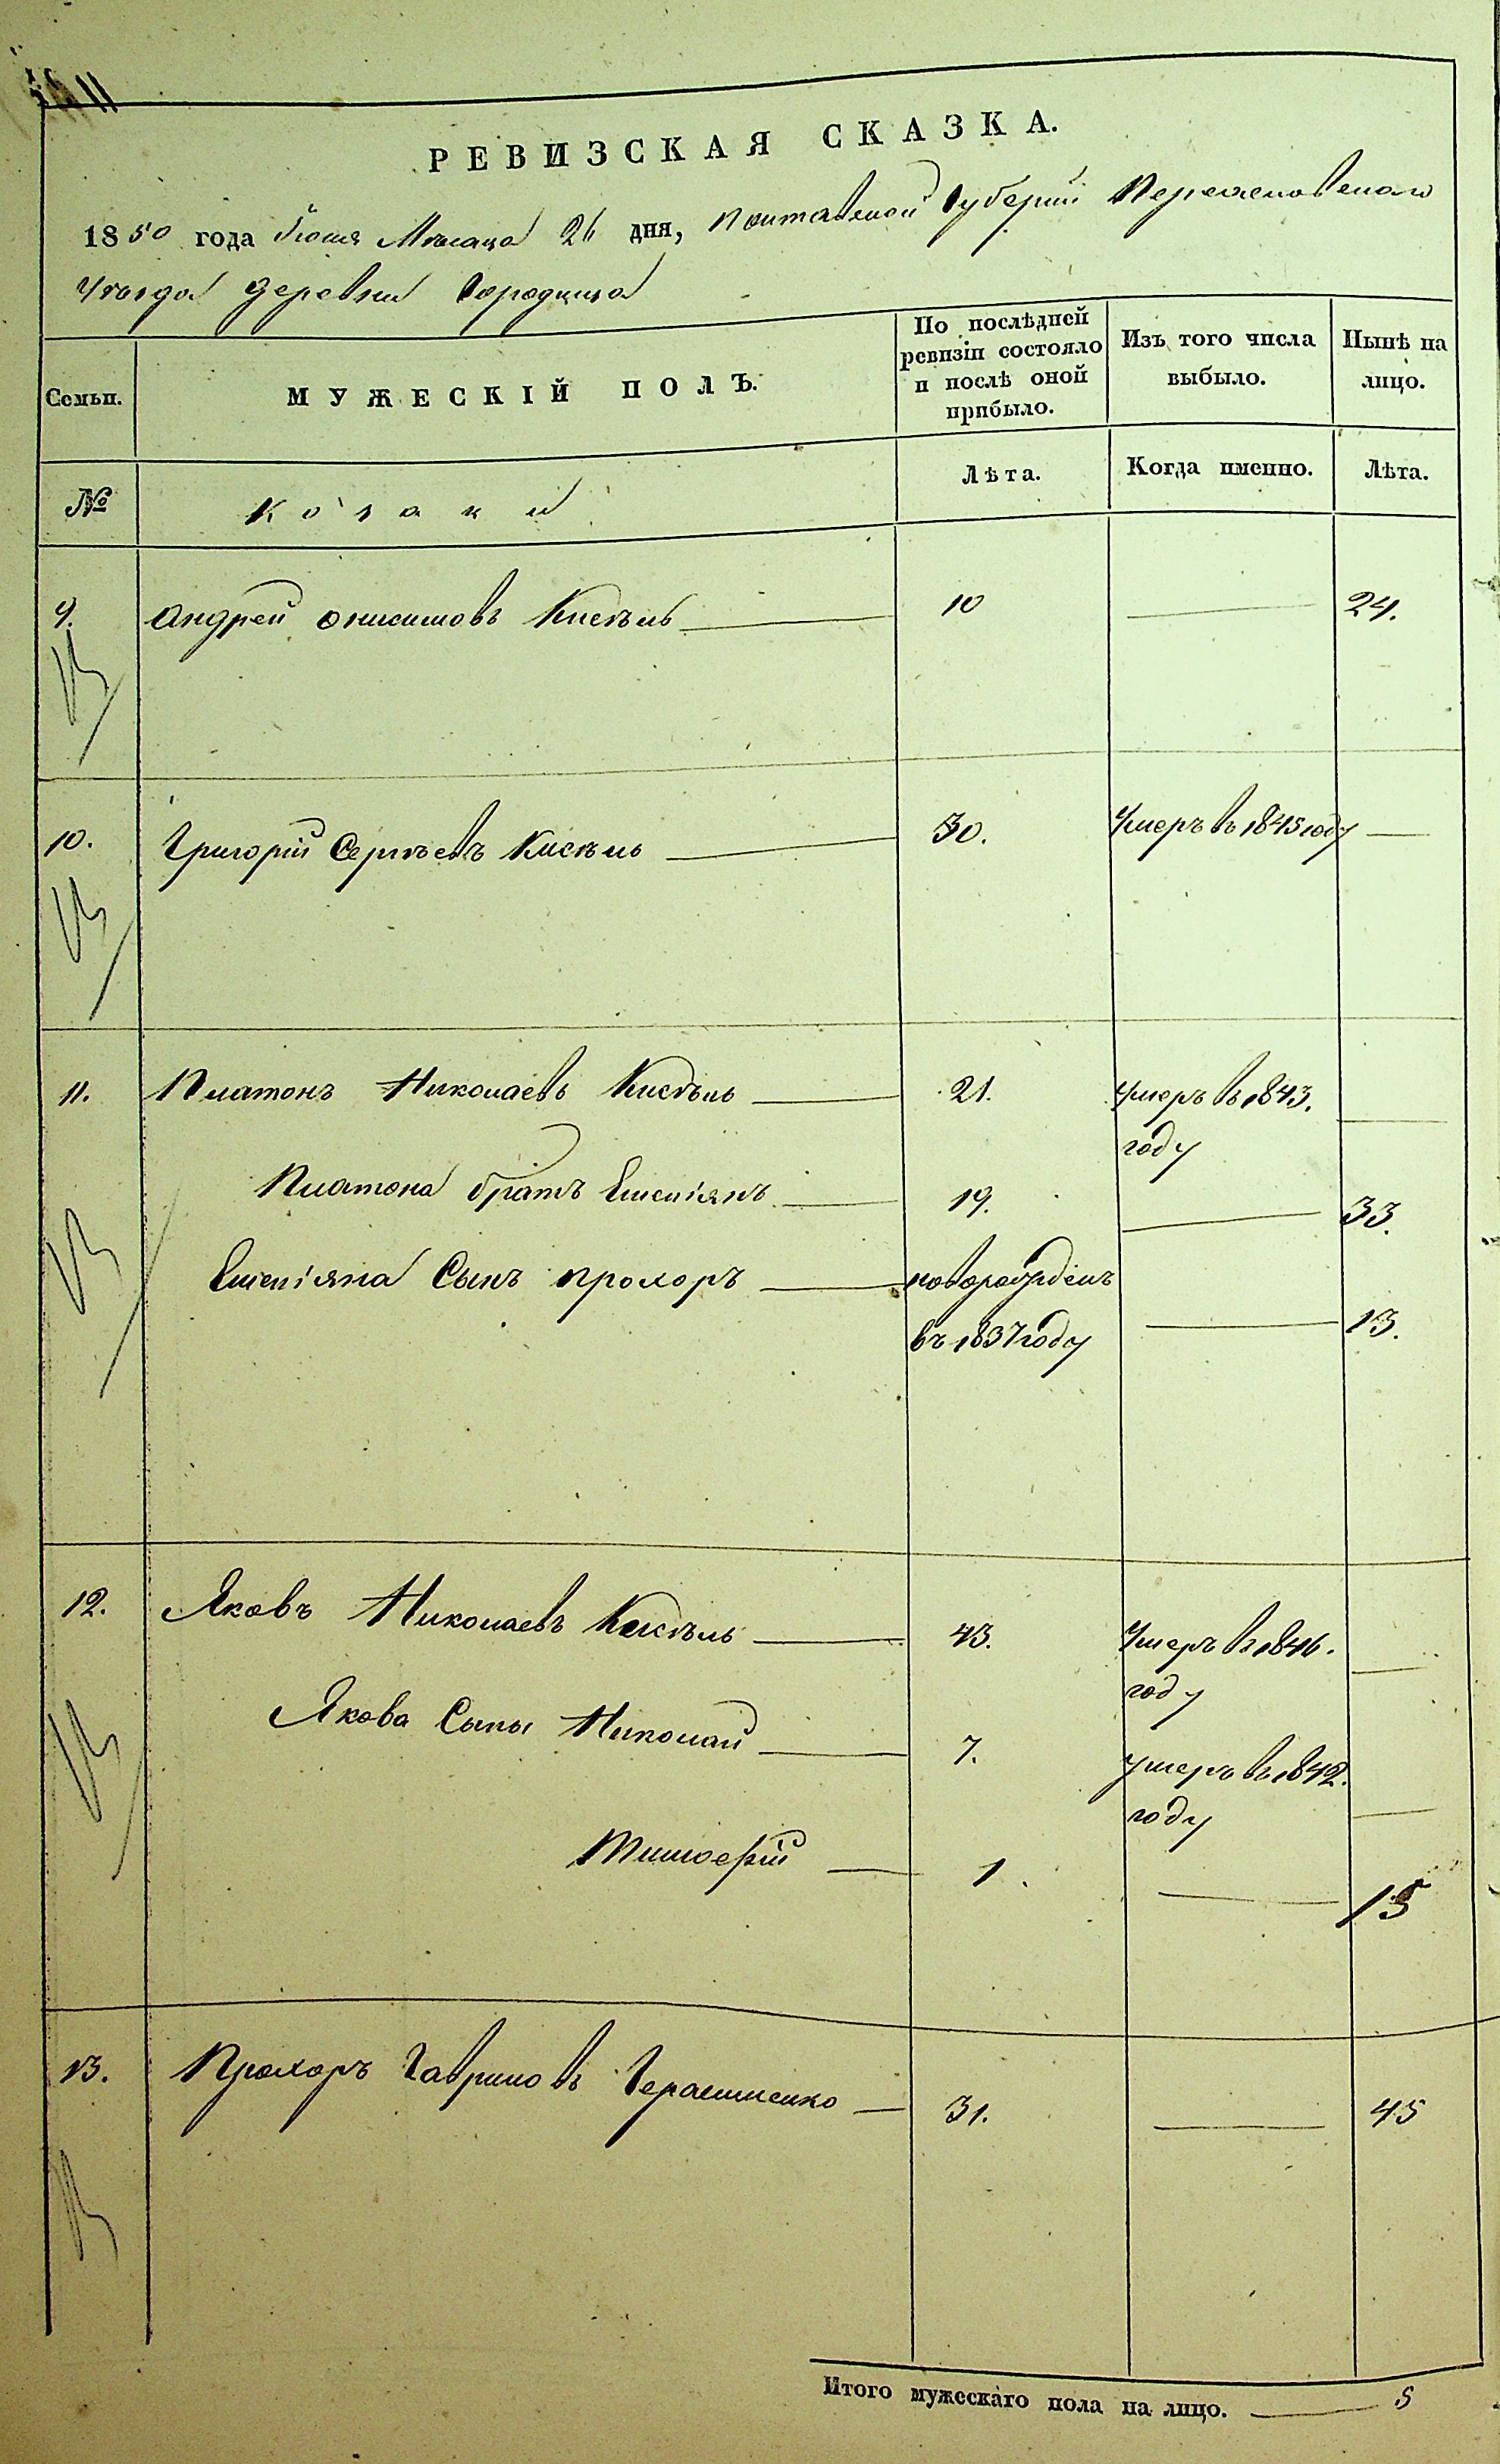 РЕВИЗСКАЯ СКАЗКА.
1850 года Июня Месяца 26 дня, Полтавской Губерніи Переяславскаго
Уѣзда деревни Городища
Семьи.
МУЖЕСКІЙ ПОЛЪ.
По послѣдней ревизіи состояло и послѣ оной прибыло.
Изъ того числа выбыло.
Нынѣ на лицо.
№
Козаки
Лѣта.
Когда именно.
Лѣта.
9. Андрей Онисимовъ Кисѣль 10 24.
10. Григорій Сергѣевъ Кисѣль 30. Умеръ въ 1845 году
11. Платонъ Николаевъ Кисѣль 21. Умеръ въ 1843. году
Платона братъ Емеліянъ 19. 33.
Емеліяна Сынъ Прохоръ новорожденъ въ 1837 году 13.
12. Яковъ Николаевъ Кисѣль 43. Умеръ въ 1846. году
Якова Сыны Николай 7. умеръ въ 1842. году
Тимофей 1. 15
13. Прохоръ Гавриловъ Герасименко 31. 45
Итого мужескаго пола на лицо. 5